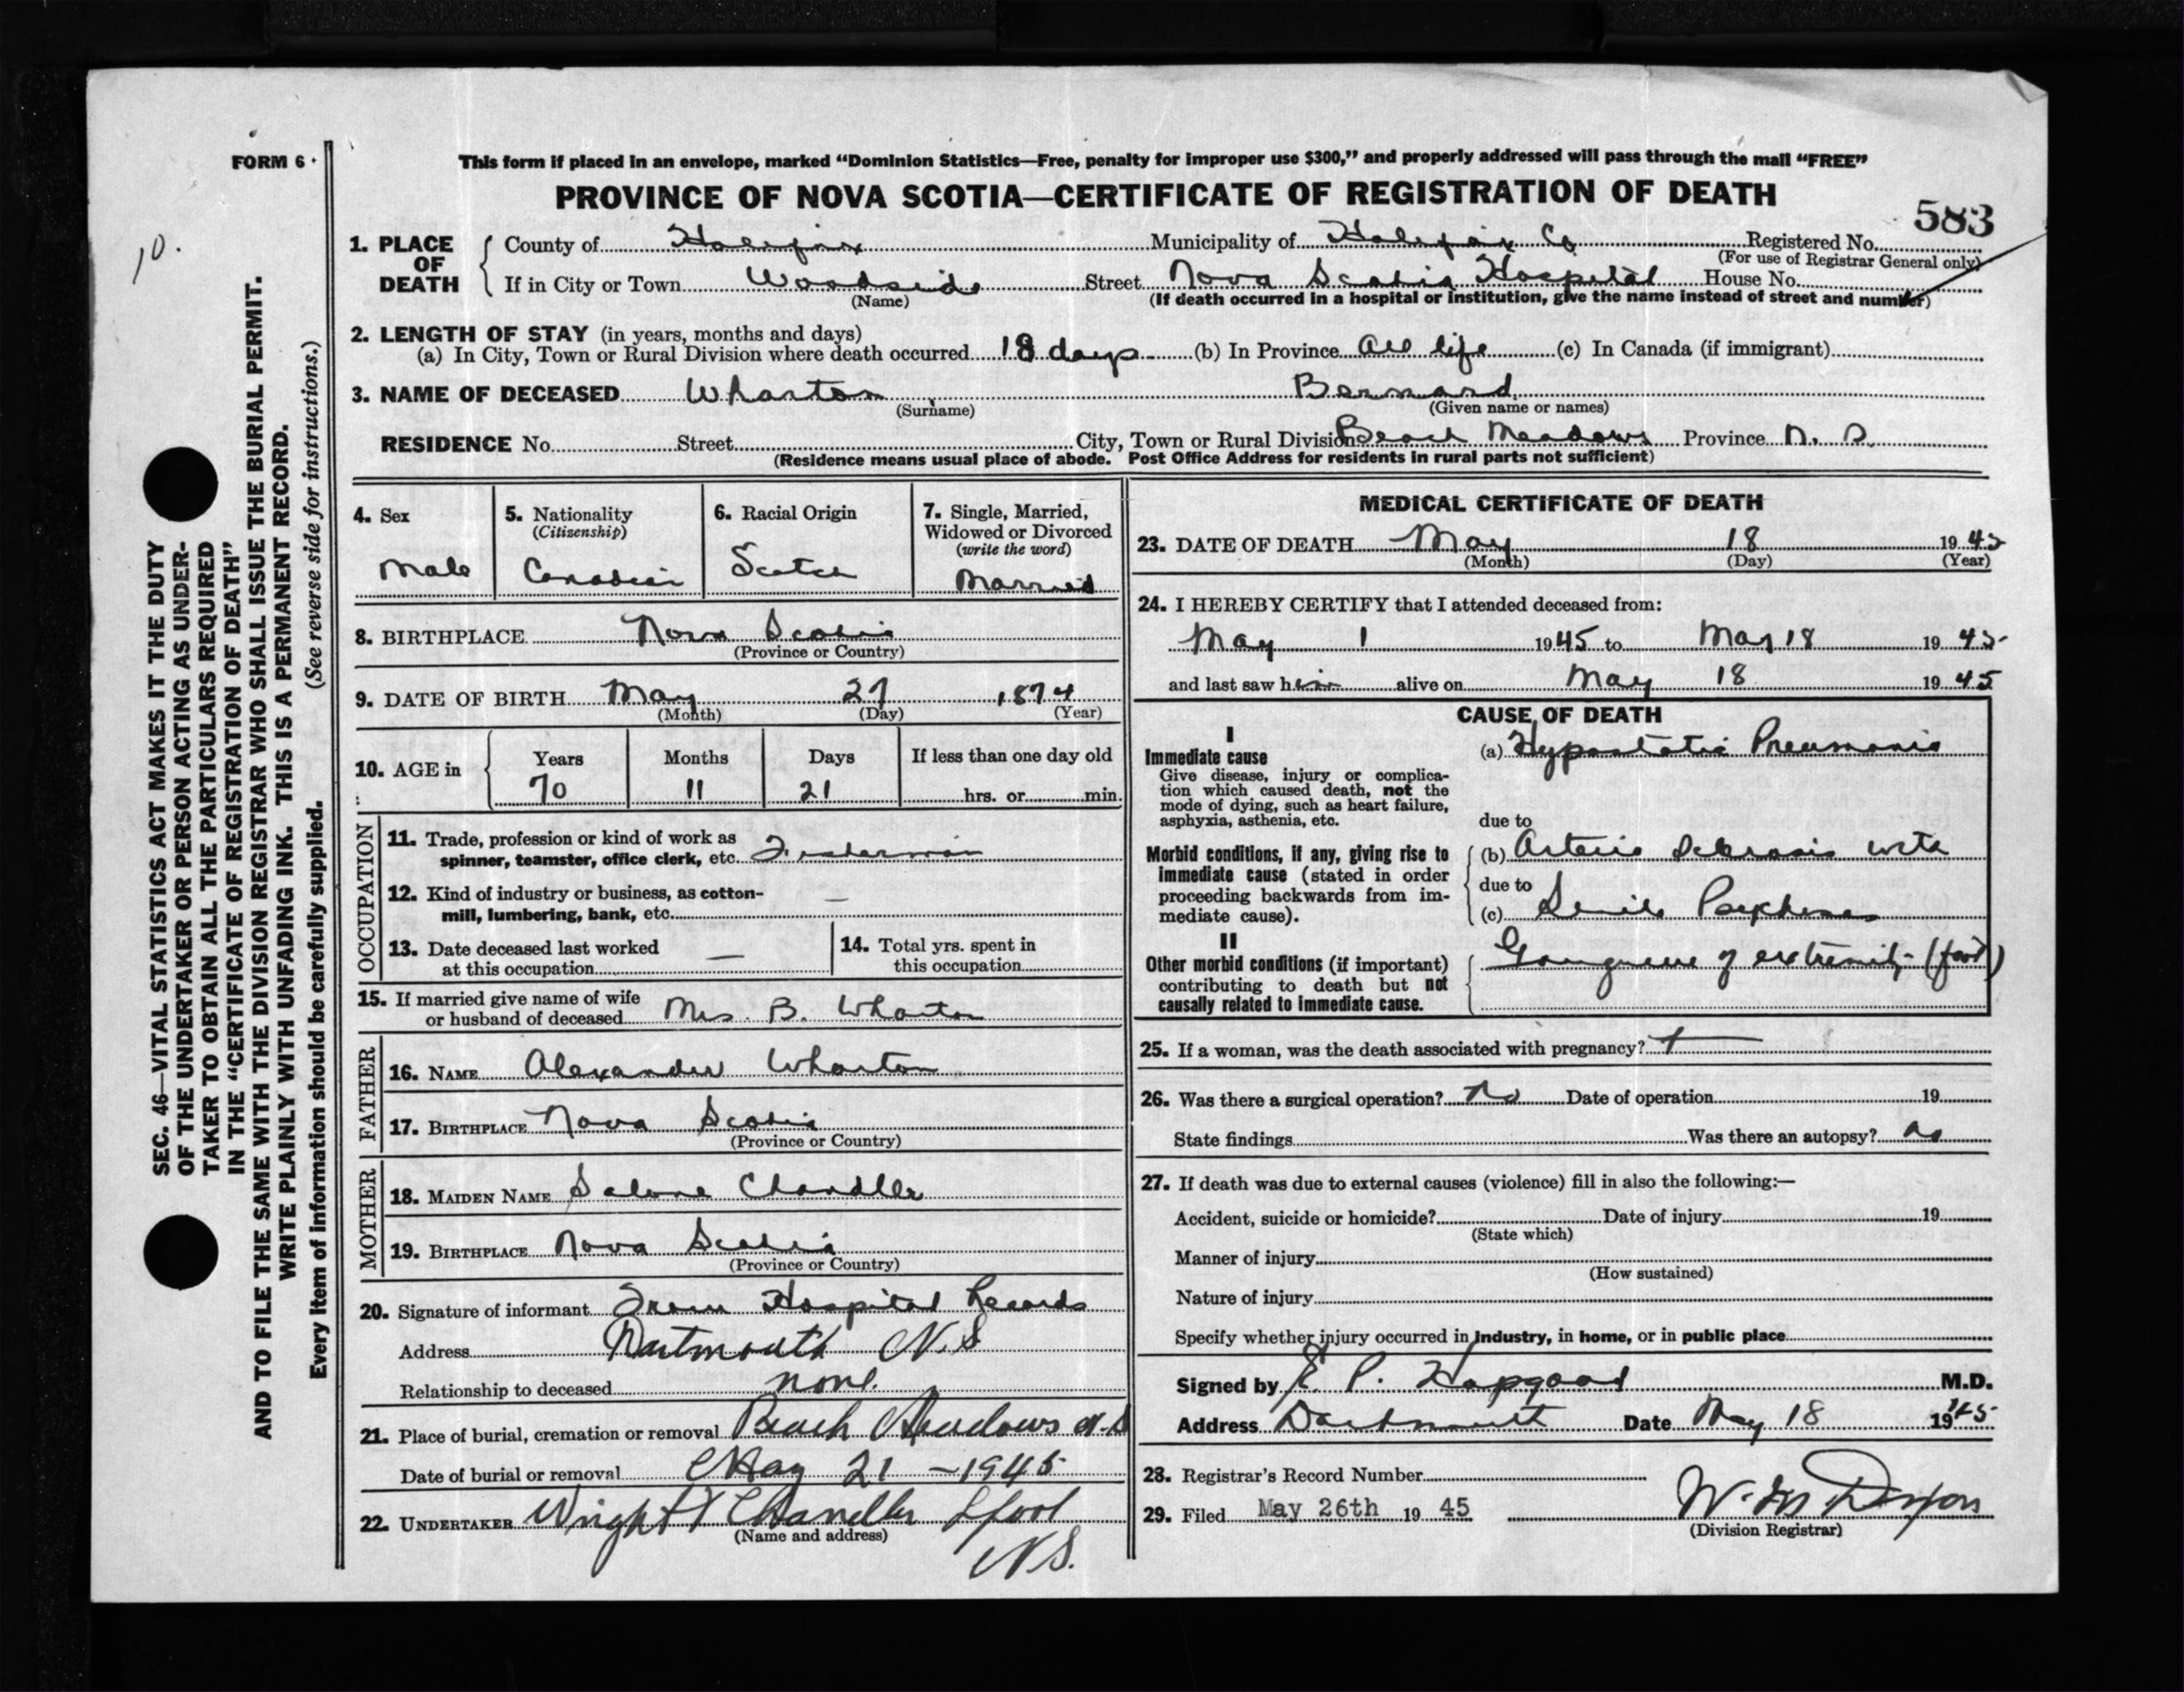 FORM 6
This form if placed in an envelope, marked “Dominion Statistics—Free, penalty for improper use $300,” and properly addressed will pass through the mail “FREE”
PROVINCE OF NOVA SCOTIA—CERTIFICATE OF REGISTRATION OF DEATH
583
10.
1. PLACE OF DEATH
County of Halifax Municipality of Halifax Co Registered No.
(For use of Registrar General only)
If in City or Town Woodside Street Nova Scotia Hospital House No.
(Name) (If death occurred in a hospital or institution, give the name instead of street and number)
2. LENGTH OF STAY (in years, months and days)
(a) In City, Town or Rural Division where death occurred 18 days (b) In Province All life (c) In Canada (if immigrant)
3. NAME OF DECEASED Wharton Bernard
(Surname) (Given name or names)
RESIDENCE No. Street City, Town or Rural Division Beach Meadows Province N. S.
(Residence means usual place of abode. Post Office Address for residents in rural parts not sufficient)
4. Sex
Male
5. Nationality
(Citizenship)
Canadian
6. Racial Origin
Scotch
7. Single, Married,
Widowed or Divorced
(write the word)
Married
8. BIRTHPLACE Nova Scotia
(Province or Country)
9. DATE OF BIRTH May 27 1874
(Month) (Day) (Year)
10. AGE in
Years Months Days If less than one day old
70 11 21 hrs. or min.
OCCUPATION
11. Trade, profession or kind of work as
spinner, teamster, office clerk, etc. Fisherman
12. Kind of industry or business, as cotton-
mill, lumbering, bank, etc. —
13. Date deceased last worked
at this occupation —
14. Total yrs. spent in
this occupation
15. If married give name of wife
or husband of deceased Mrs. B. Wharton
FATHER
16. NAME Alexander Wharton
17. BIRTHPLACE Nova Scotia
(Province or Country)
MOTHER
18. MAIDEN NAME Salome Chandler
19. BIRTHPLACE Nova Scotia
(Province or Country)
20. Signature of informant From Hospital Records
Address Dartmouth N.S
Relationship to deceased none.
21. Place of burial, cremation or removal Beach Meadows N.S
Date of burial or removal May 21 - 1945
22. UNDERTAKER Wright & Chandler Lpool
(Name and address)
N.S.
MEDICAL CERTIFICATE OF DEATH
23. DATE OF DEATH May 18 1945
(Month) (Day) (Year)
24. I HEREBY CERTIFY that I attended deceased from:
May 1 1945 to May 18 1945
and last saw him alive on May 18 1945
CAUSE OF DEATH
I
Immediate cause
Give disease, injury or complica-
tion which caused death, not the
mode of dying, such as heart failure,
asphyxia, asthenia, etc.
(a) Hypostatic Pneumonia
due to
Morbid conditions, if any, giving rise to
immediate cause (stated in order
proceeding backwards from im-
mediate cause).
(b) Arterio Sclerosis with
due to
(c) Senile Psychoses
II
Other morbid conditions (if important)
contributing to death but not
causally related to immediate cause.
Gangrene of extremity (foot)
25. If a woman, was the death associated with pregnancy?
26. Was there a surgical operation? No Date of operation 19
State findings Was there an autopsy? no
27. If death was due to external causes (violence) fill in also the following:—
Accident, suicide or homicide? Date of injury 19
(State which)
Manner of injury
(How sustained)
Nature of injury
Specify whether injury occurred in industry, in home, or in public place
Signed by E. P. Hopgood M.D.
Address Dartmouth Date May 18 1945
28. Registrar's Record Number
29. Filed May 26th 19 45
(Division Registrar)
SEC. 46—VITAL STATISTICS ACT MAKES IT THE DUTY
OF THE UNDERTAKER OR PERSON ACTING AS UNDER-
TAKER TO OBTAIN ALL THE PARTICULARS REQUIRED
IN THE “CERTIFICATE OF REGISTRATION OF DEATH”
AND TO FILE THE SAME WITH THE DIVISION REGISTRAR WHO SHALL ISSUE THE BURIAL PERMIT.
WRITE PLAINLY WITH UNFADING INK. THIS IS A PERMANENT RECORD.
Every item of information should be carefully supplied. (See reverse side for instructions.)